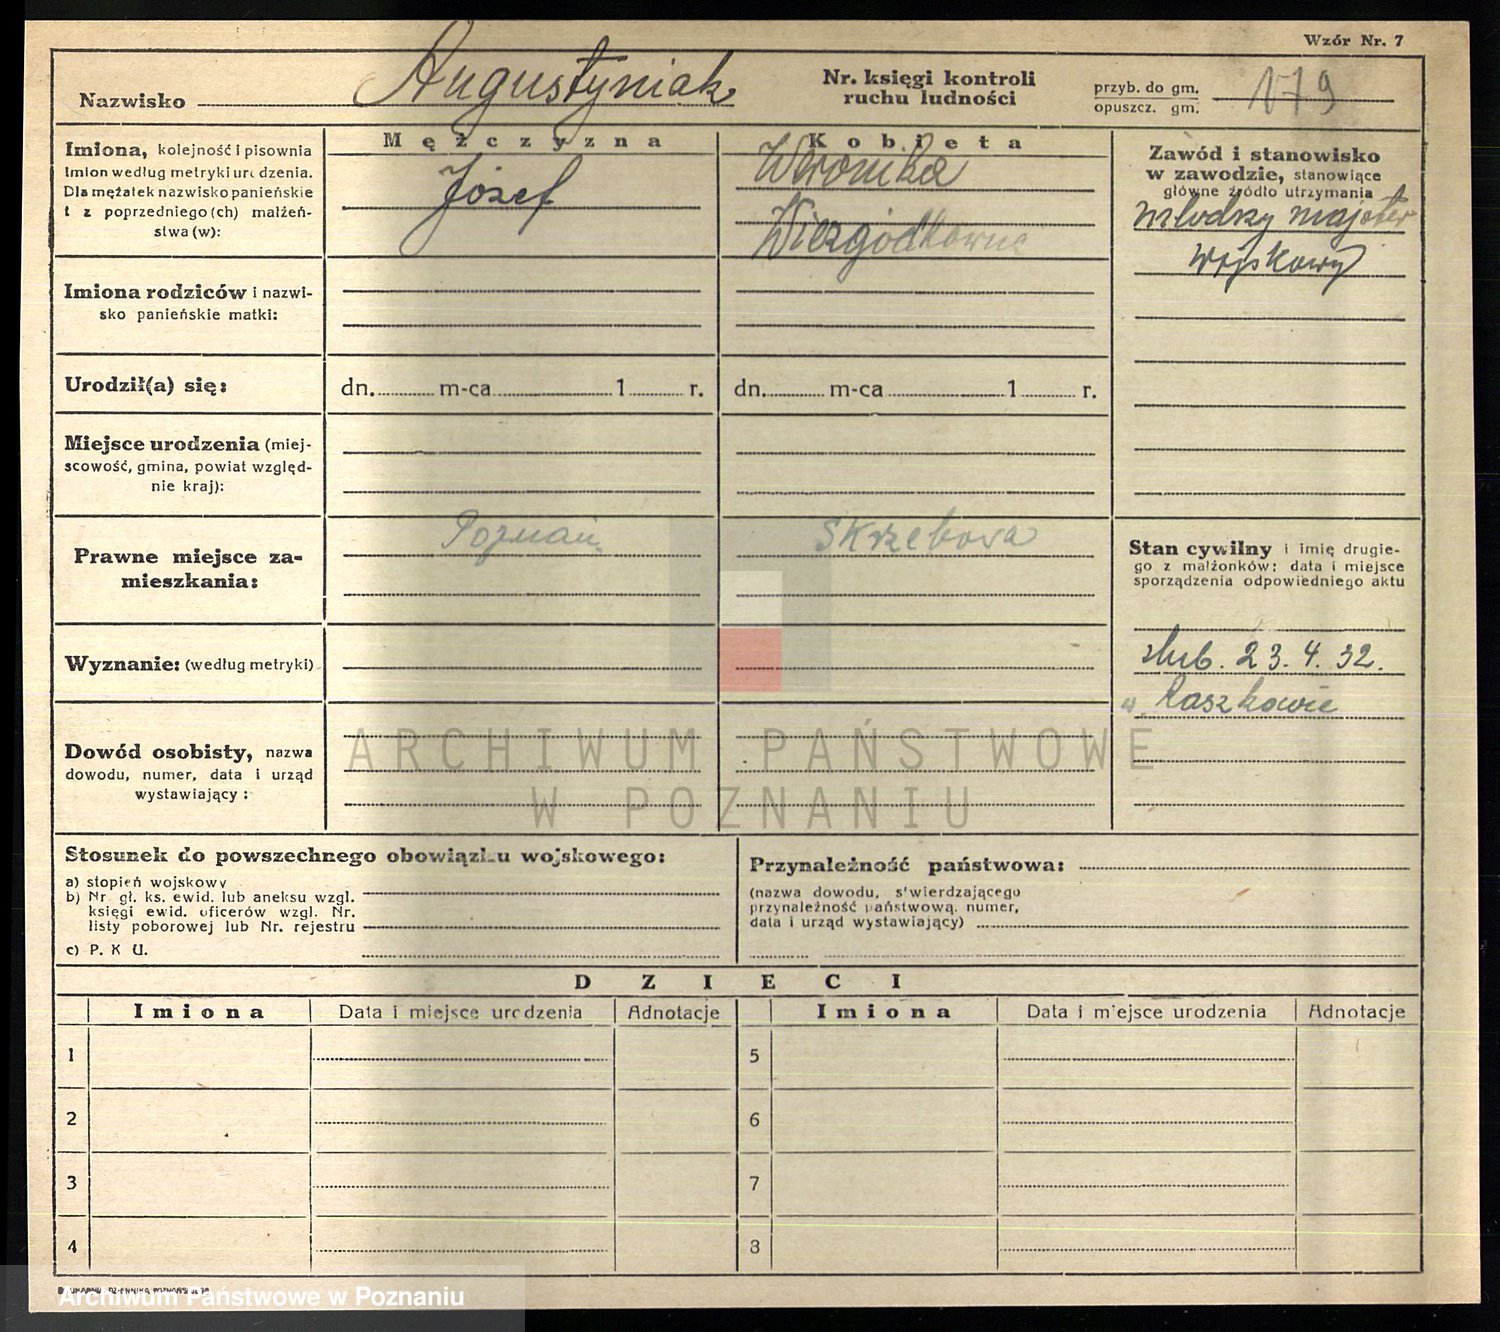 Wzór Nr. 7
Nazwisko Augustyniak
Nr. księgi kontroli ruchu ludności
przyb. do gm.
opuszcz. gm.
179
Imiona, kolejność i pisownia
imion według metryki urodzenia.
Dla mężatek nazwisko panieńskie
i z poprzedniego (ch) małżeń-
stwa (w):
Mężczyzna
Józef
Kobieta
Weronika
Zawód i stanowisko
w zawodzie, stanowiące
główne źródło utrzymania
młodszy majster
wojskowy
Imiona rodziców i nazwi-
sko panieńskie matki:
Urodził(a) się:
dn. m-ca 1 r.
dn. m-ca 1 r.
Miejsce urodzenia (miej-
scowość, gmina, powiat względ-
nie kraj):
Prawne miejsce za-
mieszkania:
Poznań
Skrzebowa
Stan cywilny i imię drugie-
go z małżonków; data i miejsce
sporządzenia odpowiedniego aktu
ślub. 23. 4. 32.
w Raszkowie
Wyznanie: (według metryki)
Dowód osobisty, nazwa
dowodu, numer, data i urząd
wystawiający :
ARCHIWUM PAŃSTWOWE
W POZNANIU
Stosunek do powszechnego obowiązku wojskowego:
a) stopień wojskowy
b) Nr gł. ks. ewid. lub aneksu wzgl.
księgi ewid. oficerów wzgl. Nr.
listy poborowej lub Nr. rejestru
c) P. K U.
Przynależność państwowa:
(nazwa dowodu, stwierdzającego
przynależność państwową, numer,
data i urząd wystawiający)
DZIECI
Imiona Data i miejsce urodzenia Adnotacje Imiona Data i miejsce urodzenia Adnotacje
1 5
2 6
3 7
4 8
Archiwum Państwowe w Poznaniu